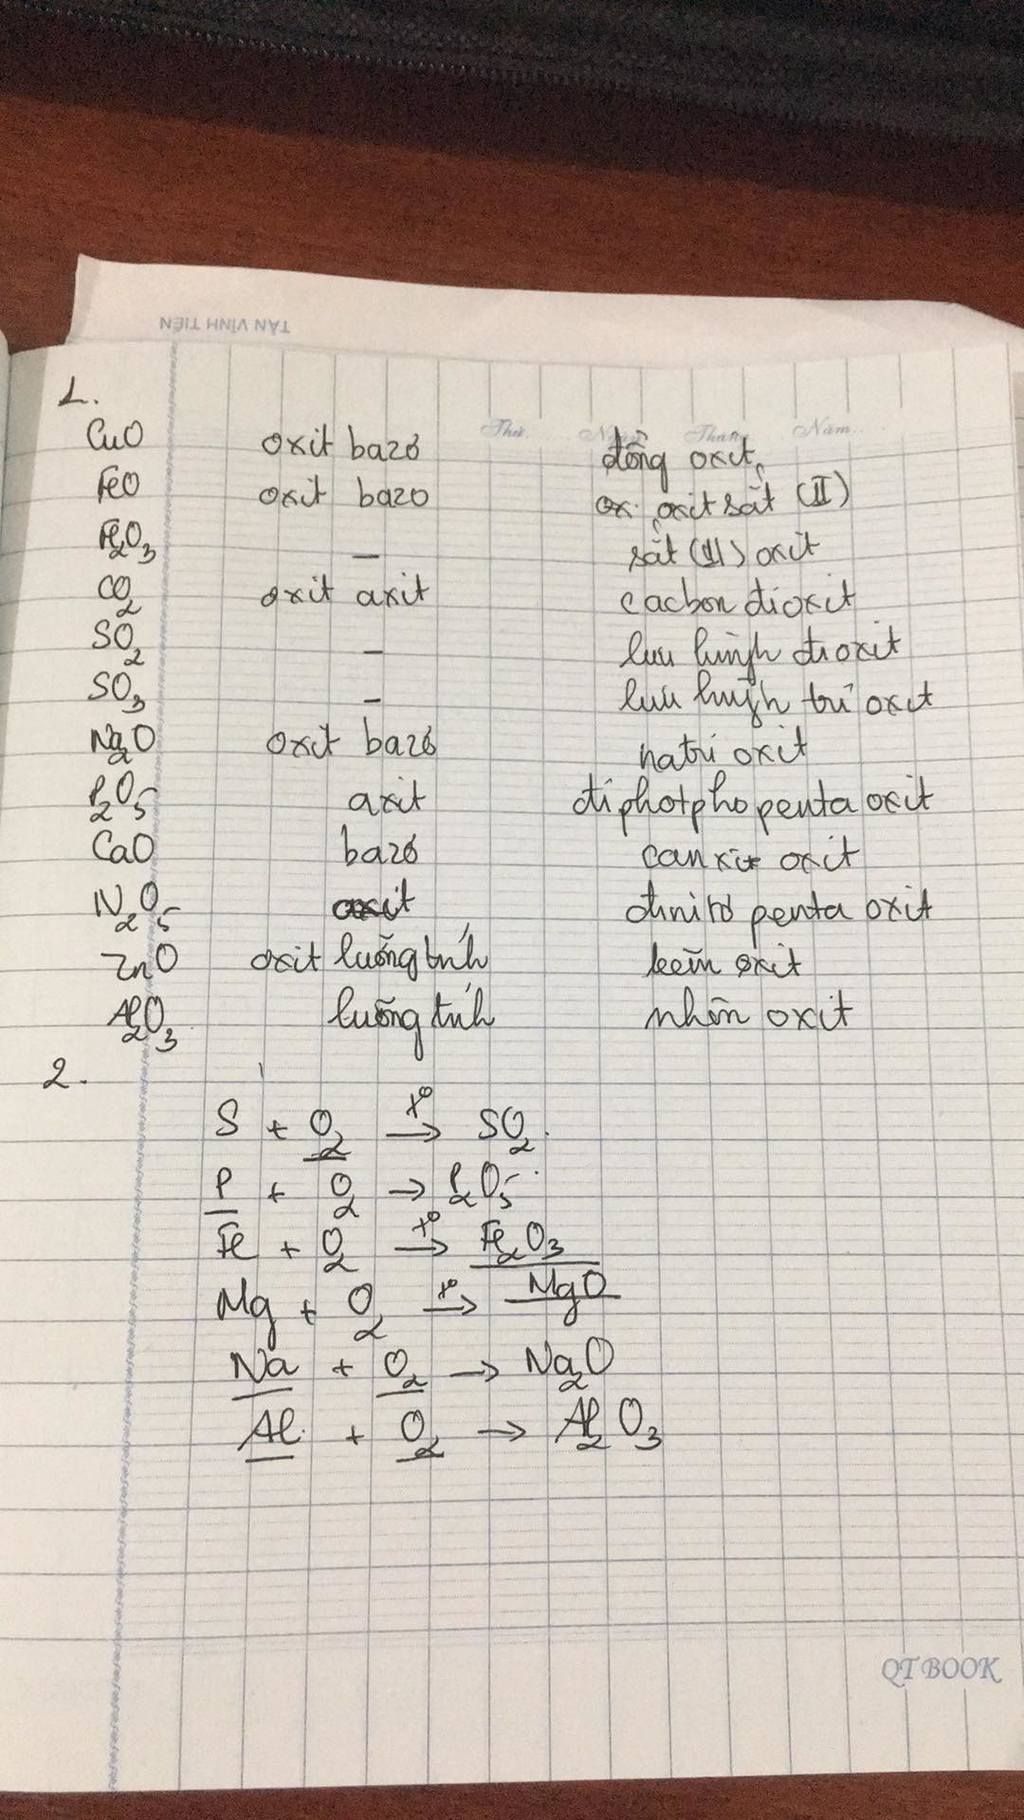 TÂN VĨNH TIẾN
1.
Thứ. Ngày Tháng Năm...
CuO oxit bazơ đồng oxit
FeO oxit bazơ oxit sắt (II)
Fe2O3 – sắt (III) oxit
CO2 oxit axit cacbon đioxit
SO2 – lưu huỳnh đioxit
SO3 – lưu huỳnh tri oxit
Na2O oxit bazơ natri oxit
P2O5 axit điphotpho penta oxit
CaO bazơ canxi oxit
N2O5 axit đinitơ penta oxit
ZnO oxit lưỡng tính kẽm oxit
Al2O3 lưỡng tính nhôm oxit
2.
S + O2 →t° SO2
P + O2 → P2O5
Fe + O2 →t° Fe2O3
Mg + O2 →t° MgO
Na + O2 → Na2O
Al + O2 → Al2O3
QT BOOK